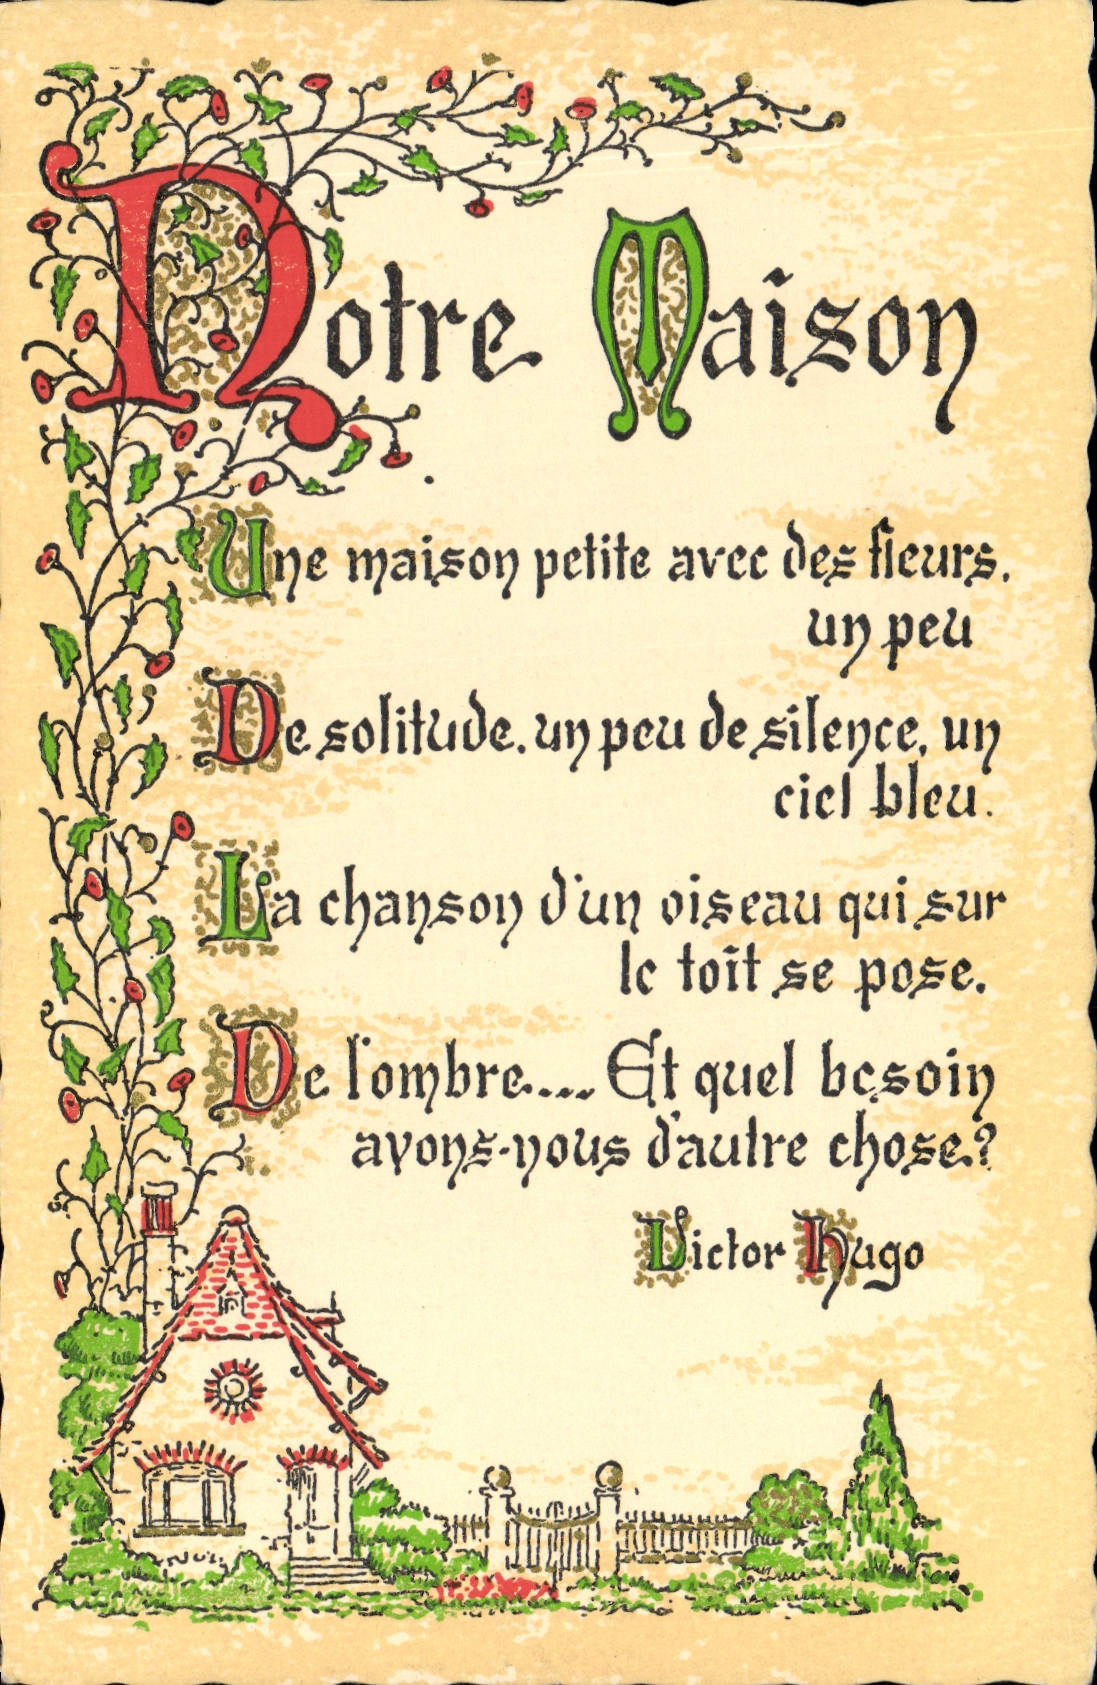 Notre Maison
Une maison petite avec des fleurs,
un peu
De solitude, un peu de silence, un
ciel bleu.
La chanson d'un oiseau qui sur
le toit se pose.
De l'ombre.... Et quel besoin
avons-nous d'autre chose?
Victor Hugo